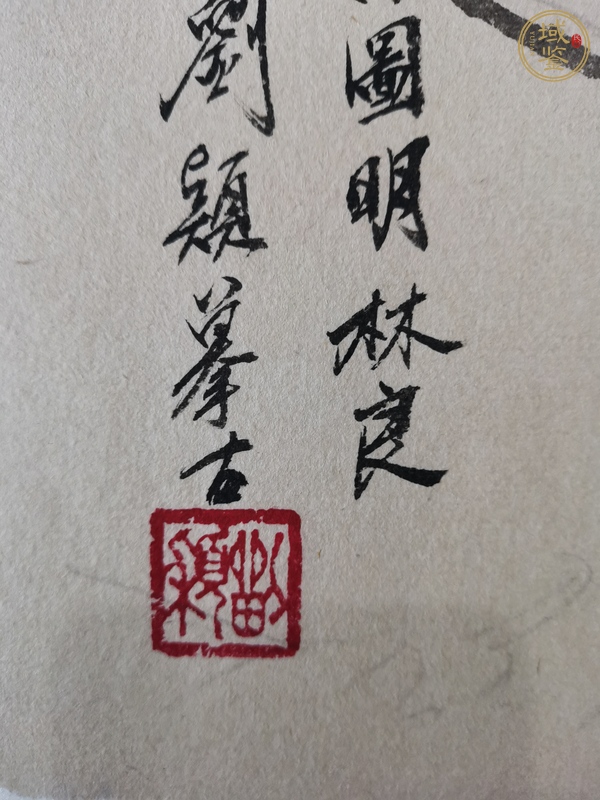 圖明林良
劉穎摹古
域鉴